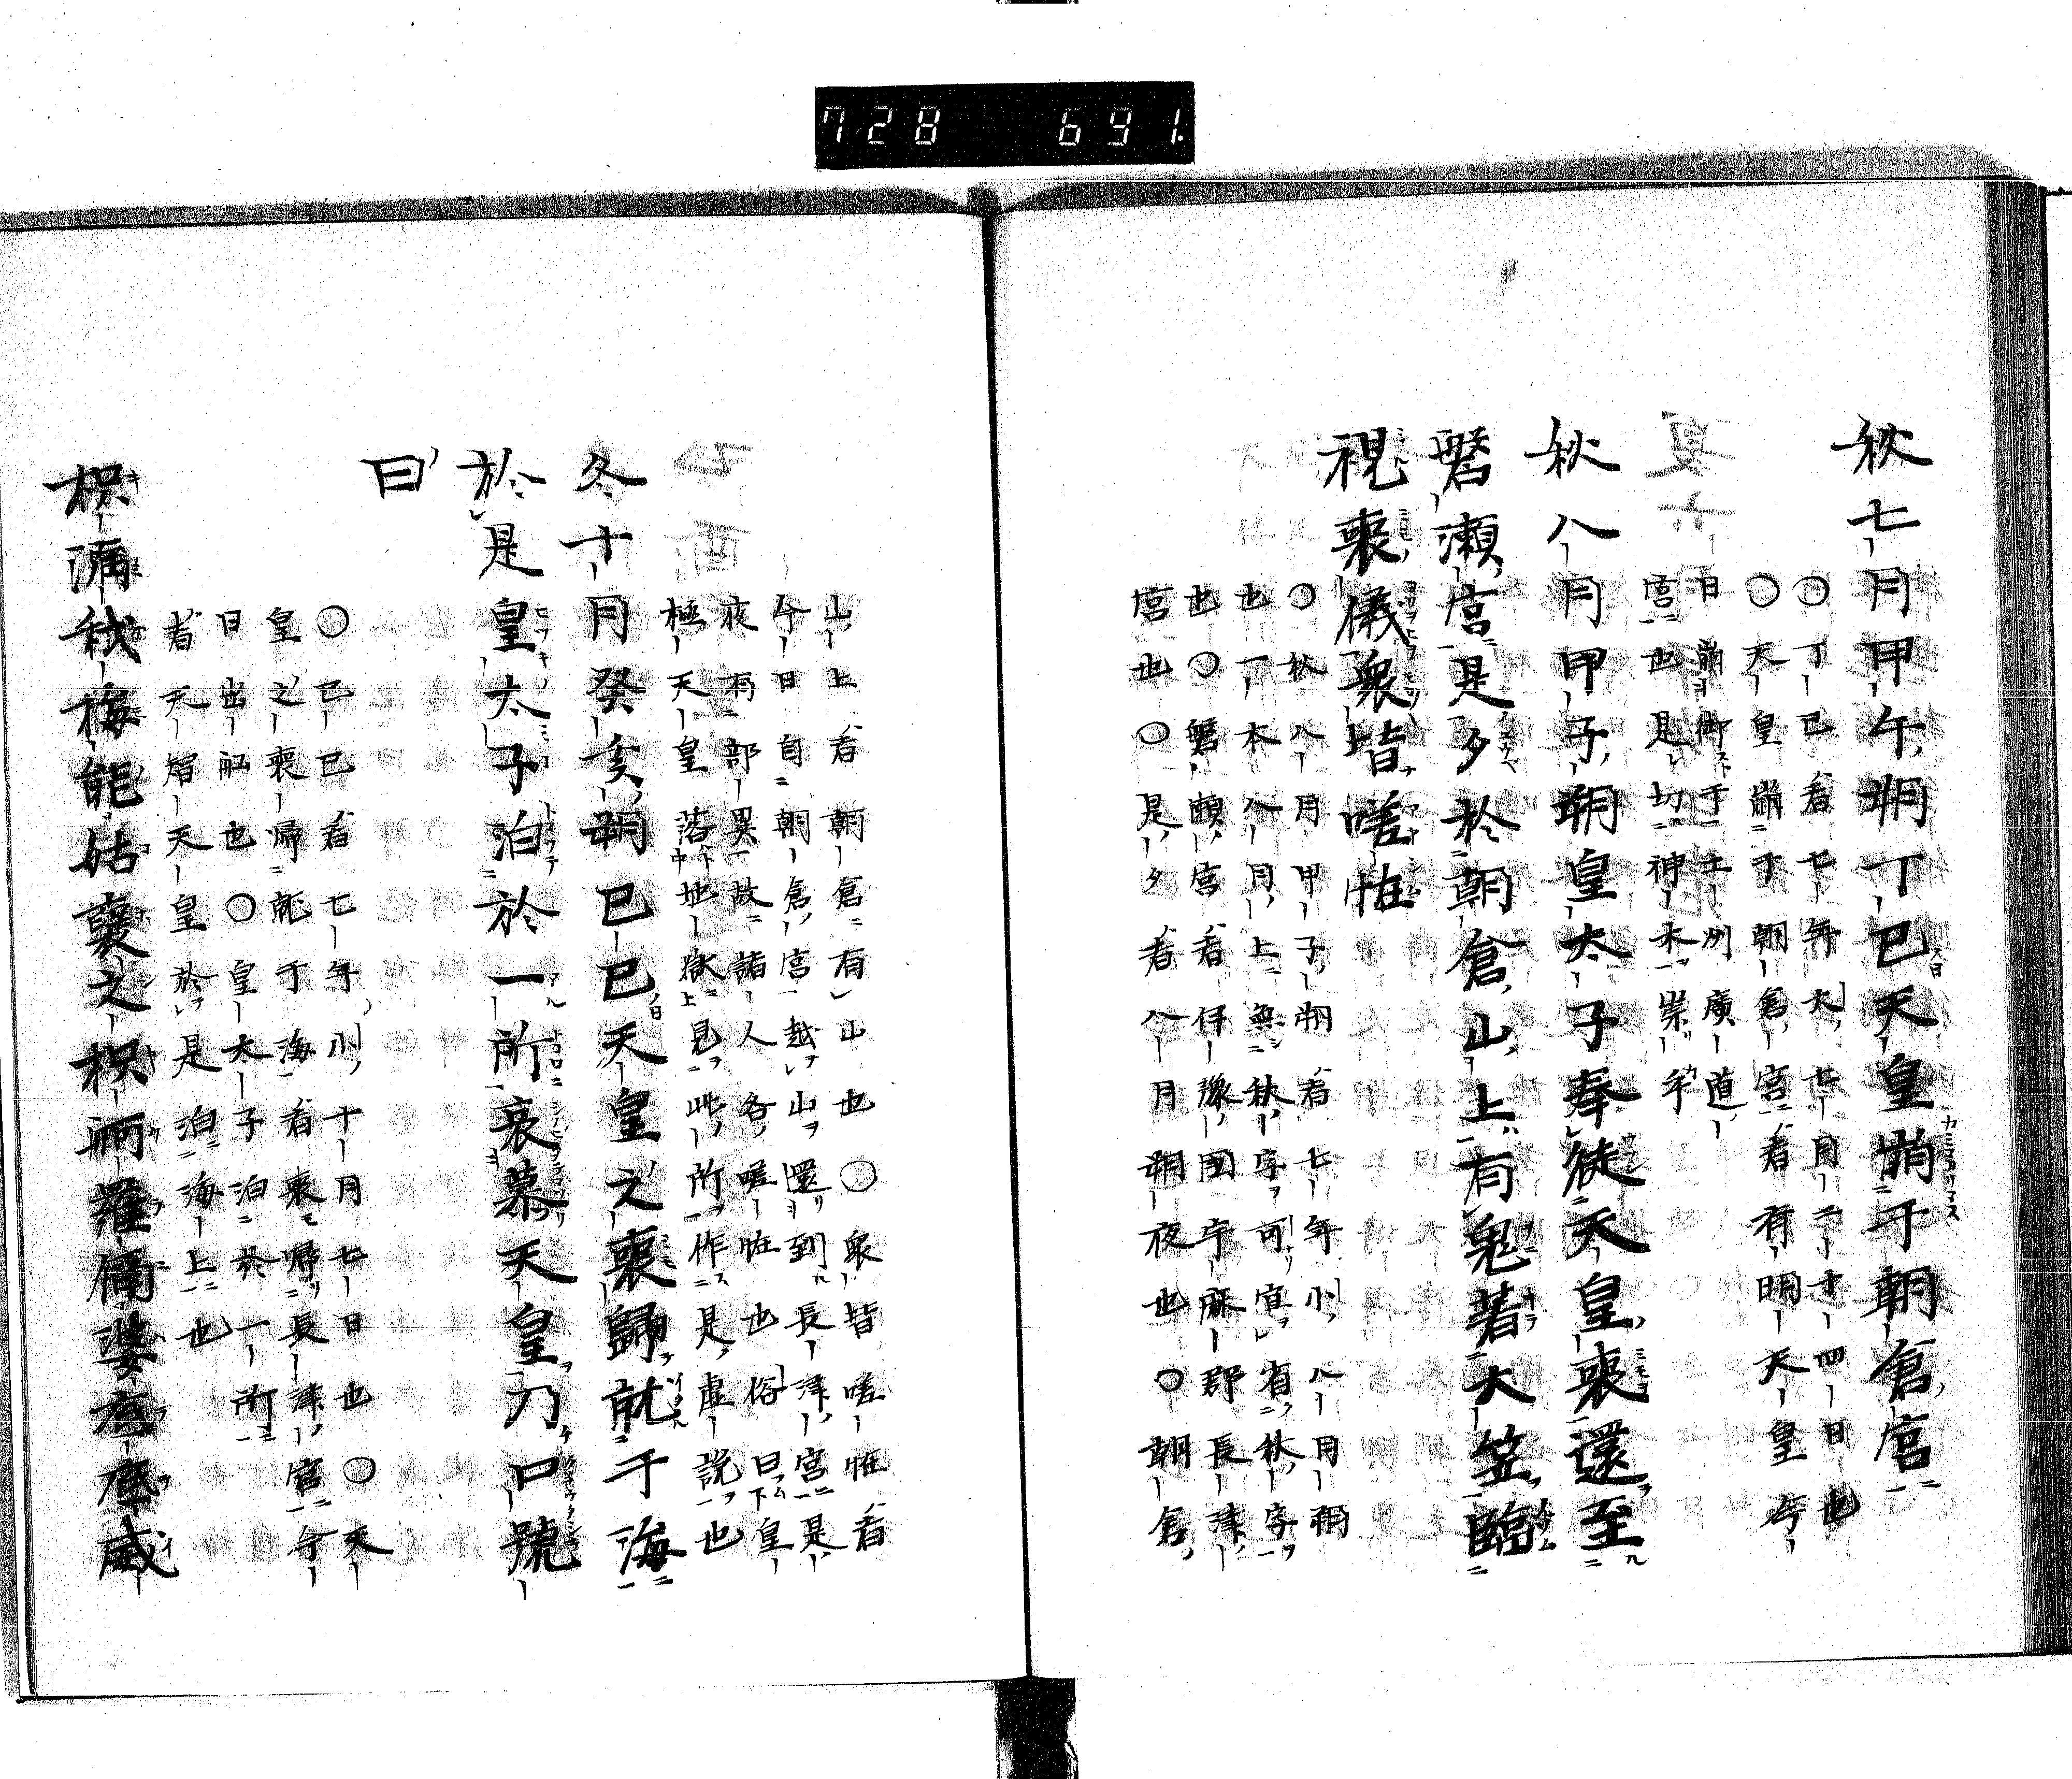 728 691.
秋七月甲午朔丁巳天皇崩于朝倉宮
〇丁巳者七年大七月二十四日也
〇天皇崩于朝倉宮者有明天皇今
日崩御于土州廣道
宮也是切神木祟乎
秋八月甲子朔皇太子奉徙天皇喪還至
磐瀬宮是夕於朝倉山上有鬼着大笠臨
視喪儀衆皆嗟恠
〇秋八月甲子朔者七年小八月朔
也一本八月上無秋字可宜省秋字
也〇磐瀬宮者伊豫國宇麻郡長津
宮也〇是夕者八月朔夜也〇朝倉
山上者朝倉有山也〇衆皆嗟恠者
今日自朝倉宮越山還到長津宮是
夜有部異故諸人各嗟恠也俗曰皇
極天皇落地獄見此所作是虚説也
冬十月癸亥朔己巳天皇之喪歸就于海
於是皇太子泊於一所哀慕天皇乃口號
曰
〇己巳者七年小十月七日也〇天
皇之喪歸就于海者喪歸長津宮今
日出船也〇皇太子泊於一所
者天智天皇於是泊海上也
枳瀰我梅能姑裒之枳舸羅儞婆底底威